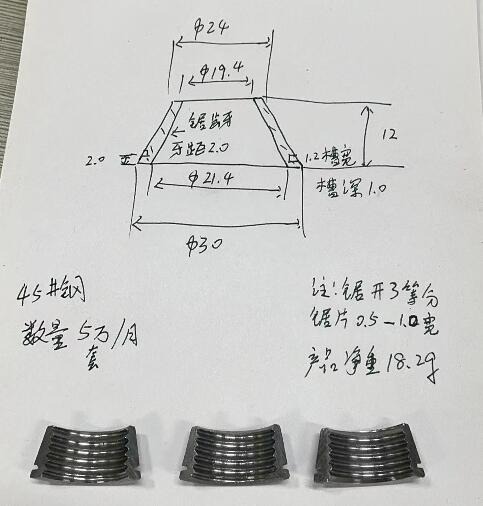 φ24
φ19.4
锯齿牙
牙距2.0
12
2.0
1.2槽宽
槽深1.0
φ21.4
φ30
45#钢
数量 5万/月
套
注:锯开3等分
锯片0.5-1.0宽
产品净重18.2g